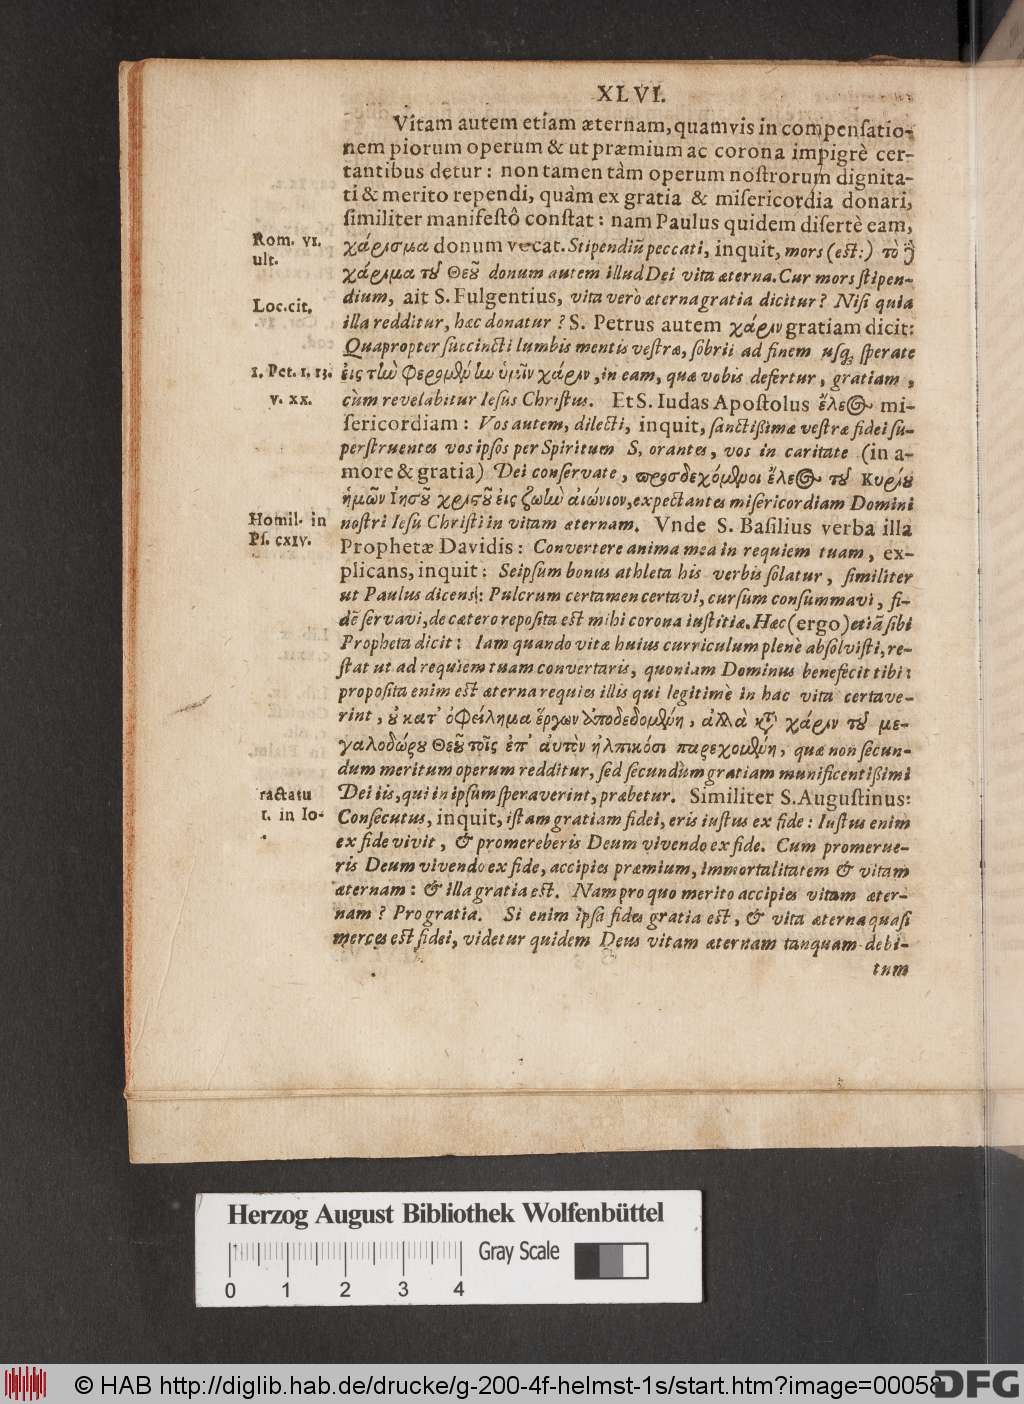 XLVI.
Vitam autem etiam æternam, quamvis in compenſatio-
nem piorum operum & ut præmium ac corona impigrè cer-
tantibus detur: non tamen tàm operum noſtrorum dignita-
ti & merito rependi, quàm ex gratia & miſericordia donari,
ſimiliter manifeſtô conſtat: nam Paulus quidem diſertè eam,
Rom. VI.
ult.
χάρισμα donum vocat. Stipendiũ peccati, inquit, mors (eſt:) τὸ ϳ
χάρισμα τοῦ Θεοῦ donum autem illud Dei vita æterna. Cur mors ſtipen-
Loc. cit.
dium, ait S. Fulgentius, vita verò æterna gratia dicitur? Niſi quia
illa redditur, hæc donatur? S. Petrus autem χάριν gratiam dicit:
Quapropter ſuccincti lumbis mentis veſtræ, ſobrii ad finem uſq; ſperate
1. Pet. 1. 13.
εἰς τὴν Φερομένην ὑμῖν χάριν, in eam, quæ vobis defertur, gratiam,
v. XX.
cùm revelabitur Ieſus Chriſtus. Et S. Iudas Apoſtolus ἔλεος mi-
ſericordiam: Vos autem, dilecti, inquit, ſanctißimæ veſtræ fidei ſu-
perſtruentes vos ipſos per Spiritum S, orantes, vos in caritate (in a-
more & gratia) Dei conſervate, προσδεχόμενοι ἔλεος τοῦ Κυρίου
ἡμῶν Ἰησοῦ χριστοῦ εἰς ζωὴν αἰώνιον, expectantes miſericordiam Domini
Homil. in
Pſ. CXIV.
noſtri Ieſu Chriſti in vitam æternam. Vnde S. Baſilius verba illa
Prophetæ Davidis: Convertere anima mea in requiem tuam, ex-
plicans, inquit: Seipſum bonus athleta his verbis ſolatur, ſimiliter
ut Paulus dicens: Pulcrum certamen certavi, curſum conſummavi, fi-
dẽ ſervavi, de cætero repoſita eſt mihi corona iuſtitiæ. Hæc (ergo) etiã ſibi
Propheta dicit: Iam quando vitæ huius curriculum plenè abſolviſti, re-
ſtat ut ad requiem tuam convertaris, quoniam Dominus benefecit tibi:
propoſita enim eſt æterna requies illis qui legitimè in hac vita certave-
rint, οὐ κατ' ὀφείλημα ἔργων ἀποδεδομένη, ἀλλὰ κατὰ χάριν τοῦ με-
γαλοδώρου Θεοῦ τοῖς ἐπ' αὐτὸν ἠλπικόσι παρεχομένη, quæ non ſecun-
dum meritum operum redditur, ſed ſecundùm gratiam munificentißimi
ractatu
Dei iis, qui in ipſum ſperaverint, præbetur. Similiter S. Auguſtinus:
1. in Io-
Conſecutus, inquit, iſtam gratiam fidei, eris iuſtus ex fide: Iuſtus enim
ex fide vivit, & promereberis Deum vivendo ex fide. Cum promerue-
ris Deum vivendo ex fide, accipies præmium, immortalitatem & vitam
æternam: & illa gratia eſt. Nam pro quo merito accipies vitam æter-
nam? Pro gratia. Si enim ipſa fides gratia eſt, & vita æterna quaſi
merces eſt fidei, videtur quidem Deus vitam æternam tanquam debi-
tum
Herzog August Bibliothek Wolfenbüttel
Gray Scale
0 1 2 3 4
© HAB http://diglib.hab.de/drucke/g-200-4f-helmst-1s/start.htm?image=00058
DFG